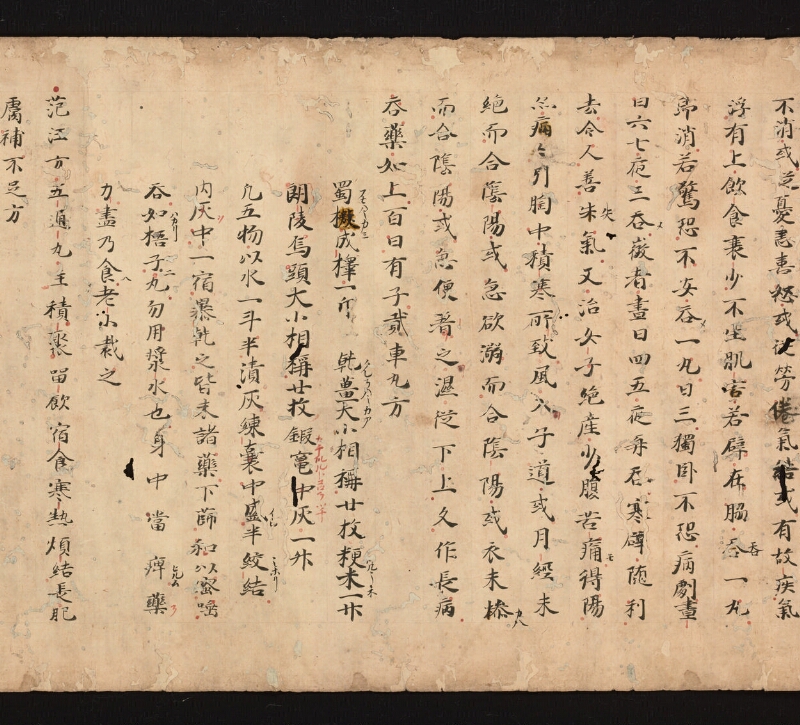 不消或悲憂恚喜怒或從勞倦氣結或有故疾氣
浮有上飲食衰少不生肌害若癖在脇吞一丸
即消若驚恐不安吞一丸日三獨臥不恐病劇晝
日六七夜三吞微者晝日四五夜再吞寒癖隨利
去令人善失氣又治女子絕產少腹苦痛得陽
亦痛々引胸中積寒所致風入子道或月經未
絕而合陰陽或急欲溺而合陰陽或衣未
而合陰陽或急便着之濕從下上久作長病
吞藥如上百日有子貳車丸方
蜀椒成擇一斤 乾薑大小相稱廿枚粳米一升
朗陵烏頭大小相稱廿枚鍛竃中灰一升
凡五物以水一斗半漬灰練囊中盛半絞結
內灰中一宿暴乾之皆末諸藥下篩和以蜜唅
吞如梧子二丸勿用漿水也身中當痺藥
力盡乃食老小裁之
范汪方五通丸主積聚留飲宿食寒熱煩結長肥
膚補不足方